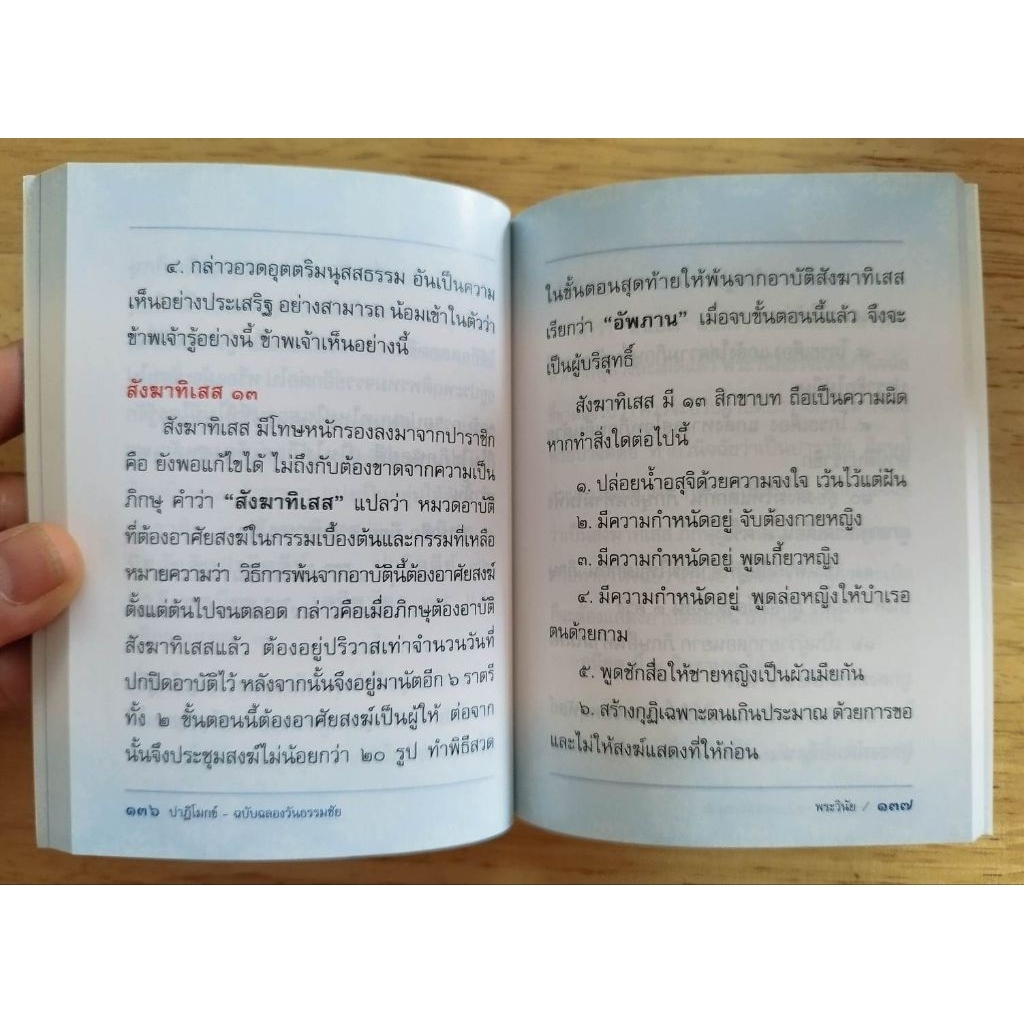 ๔. กล่าวอวดอุตตริมนุสสธรรม อันเป็นความ
เห็นอย่างประเสริฐ อย่างสามารถ น้อมเข้าในตัวว่า
ข้าพเจ้ารู้อย่างนี้ ข้าพเจ้าเห็นอย่างนี้
สังฆาทิเสส ๑๓
สังฆาทิเสส มีโทษหนักรองลงมาจากปาราชิก
คือ ยังพอแก้ไขได้ ไม่ถึงกับต้องขาดจากความเป็น
ภิกษุ คำว่า “สังฆาทิเสส” แปลว่า หมวดอาบัติ
ที่ต้องอาศัยสงฆ์ในกรรมเบื้องต้นและกรรมที่เหลือ
หมายความว่า วิธีการพ้นจากอาบัตินี้ต้องอาศัยสงฆ์
ตั้งแต่ต้นไปจนตลอด กล่าวคือเมื่อภิกษุต้องอาบัติ
สังฆาทิเสสแล้ว ต้องอยู่ปริวาสเท่าจำนวนวันที่
ปกปิดอาบัติไว้ หลังจากนั้นจึงอยู่มานัตอีก ๖ ราตรี
ทั้ง ๒ ขั้นตอนนี้ต้องอาศัยสงฆ์เป็นผู้ให้ ต่อจาก
นั้นจึงประชุมสงฆ์ไม่น้อยกว่า ๒๐ รูป ทำพิธีสวด
๑๓๖ ปาฏิโมกข์ - ฉบับฉลองวันธรรมชัย
ในขั้นตอนสุดท้ายให้พ้นจากอาบัติสังฆาทิเสส
เรียกว่า “อัพภาน” เมื่อจบขั้นตอนนี้แล้ว จึงจะ
เป็นผู้บริสุทธิ์
สังฆาทิเสส มี ๑๓ สิกขาบท ถือเป็นความผิด
หากทำสิ่งใดต่อไปนี้
๑. ปล่อยน้ำอสุจิด้วยความจงใจ เว้นไว้แต่ฝัน
๒. มีความกำหนัดอยู่ จับต้องกายหญิง
๓. มีความกำหนัดอยู่ พูดเกี้ยวหญิง
๔. มีความกำหนัดอยู่ พูดล่อหญิงให้บำเรอ
ตนด้วยกาม
๕. พูดชักสื่อให้ชายหญิงเป็นผัวเมียกัน
๖. สร้างกุฏิเฉพาะตนเกินประมาณ ด้วยการขอ
และไม่ให้สงฆ์แสดงที่ให้ก่อน
พระวินัย / ๑๓๗